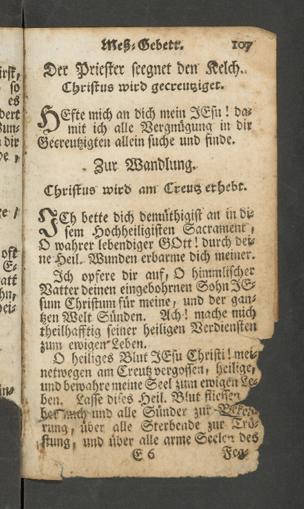 Meß-Gebett. 107
Der Priester seegnet den Kelch.
Christus wird gecreutziget.
HEfte mich an dich mein JEsu! da-
mit ich alle Vergnügung in dir
Gecreutzigten allein suche und finde.
Zur Wandlung.
Christus wird am Creutz erhebt.
JCh bette dich demüthigist an in di-
sem Hochheiligisten Sacrament,
O wahrer lebendiger GOtt! durch dei-
ne Heil. Wunden erbarme dich meiner.
Ich opfere dir auf, O himmlischer
Vatter deinen eingebohrnen Sohn JE-
sum Christum für meine, und der gan-
tzen Welt Sünden. Ach! mache mich
theilhafftig seiner heiligen Verdiensten
zum ewigen Leben.
O heiliges Blut JEsu Christi! mei-
netwegen am Creutz vergossen, heilige,
und bewahre meine Seel zum ewigen Le-
ben. Lasse dises Heil. Blut fliessen
und alle Sünder zur Bekeh-
rung, über alle Sterbende zur Trö-
stung, und über alle arme Seelen des
E 6 Feg-